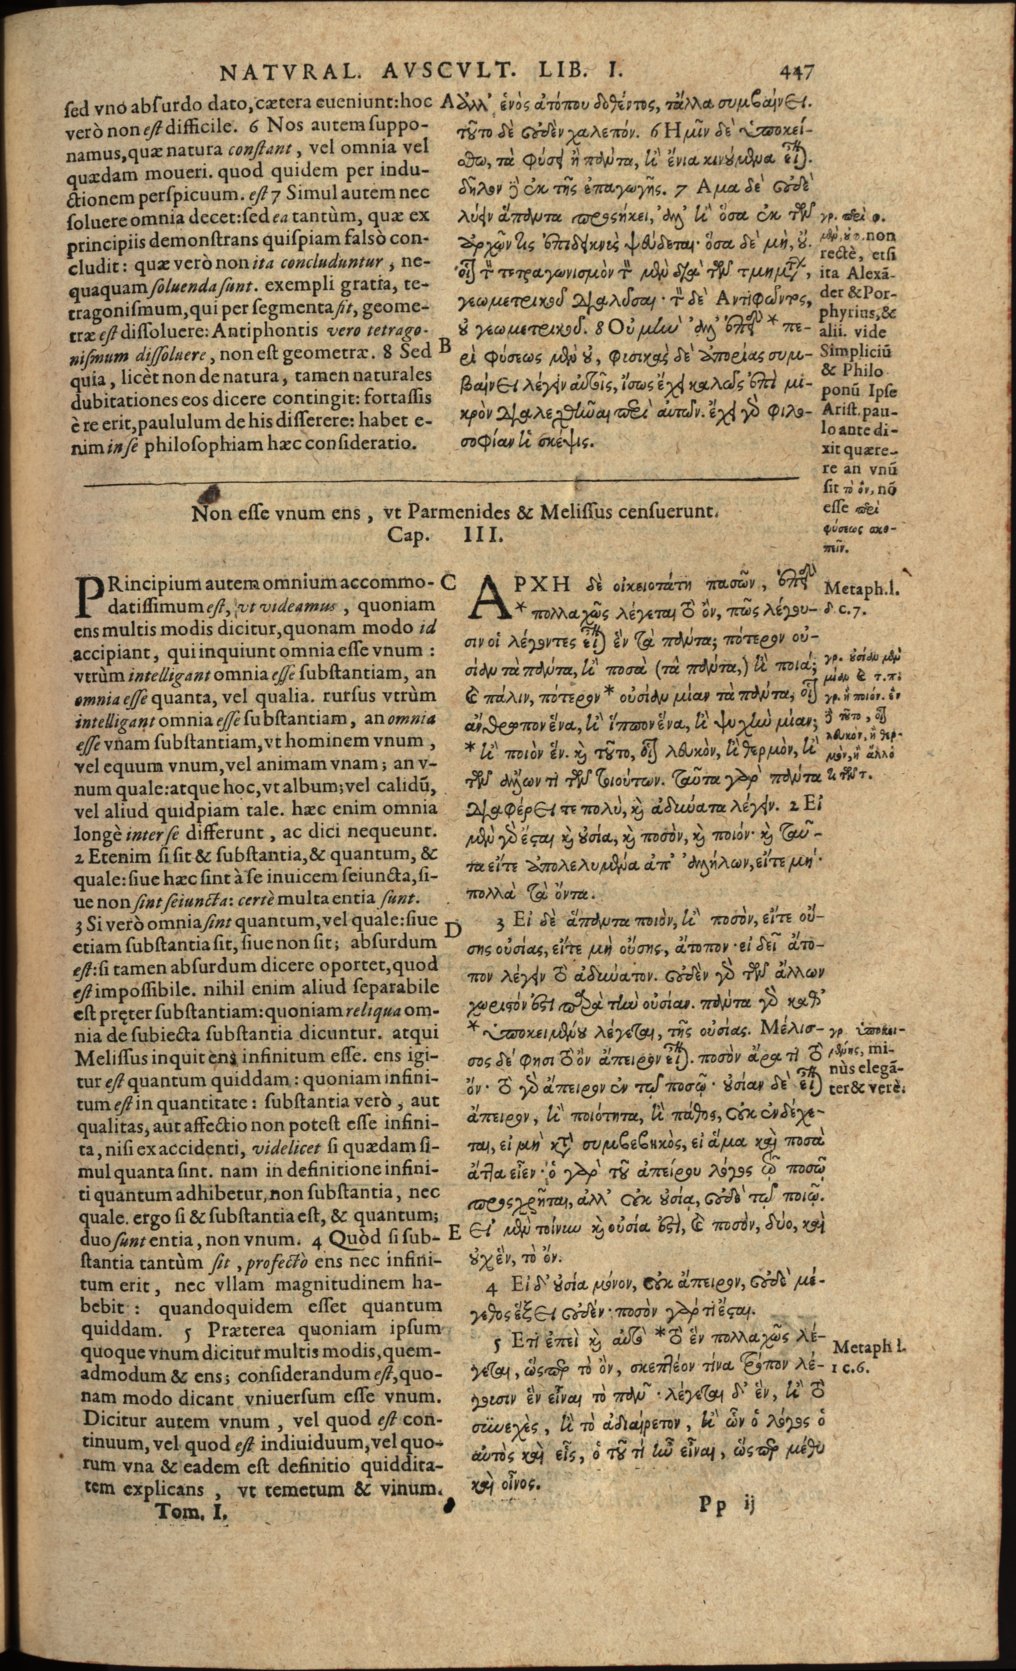 NATVRAL. AVSCVLT. LIB. I.
447
sed vno absurdo dato, cætera eueniunt: hoc
verò non est difficile. 6 Nos autem suppo-
namus, quæ natura constant, vel omnia vel
quædam moueri. quod quidem per indu-
ctionem perspicuum. est 7 Simul autem nec
soluere omnia decet: sed ea tantùm, quæ ex
principiis demonstrans quispiam falsò con-
cludit: quæ verò non ita concluduntur, ne-
quaquam soluenda sunt. exempli gratia, te-
tragonismum, qui per segmenta sit, geome-
træ est dissoluere: Antiphontis vero tetrago-
nismum dissoluere, non est geometræ. 8 Sed
quia, licèt non de natura, tamen naturales
dubitationes eos dicere contingit: fortassis
è re erit, paululum de his disserere: habet e-
nim in se philosophiam hæc consideratio.
A
B
ἀλλ' ἑνὸς ἀτόπου δοθέντος, τἄλλα συμβαίνει.
τοῦτο δὲ οὐδὲν χαλεπόν. 6 Ημῖν δὲ ὑποκεί-
σθω, τὰ φύσει ἢ πάντα, ἢ ἔνια κινούμενα εἶναι.
δῆλον δ' ἐκ τῆς ἐπαγωγῆς. 7 Αμα δὲ οὐδὲ
λύειν ἅπαντα προσήκει, ἀλλ' ἢ ὅσα ἐκ τῶν
ἀρχῶν τις ἐπιδεικνὺς ψεύδεται· ὅσα δὲ μὴ, οὔ.
οἷον τὸν τετραγωνισμὸν τὸν μὲν διὰ τῶν τμημάτων,
γεωμετρικοῦ διαλῦσαι· τὸν δὲ Αντιφῶντος,
οὐ γεωμετρικοῦ. 8 Οὐ μὴν ἀλλ' ἐπειδὴ * πε-
ρὶ φύσεως μὲν οὐ, φυσικὰς δὲ ἀπορίας συμ-
βαίνει λέγειν αὐτοῖς, ἴσως ἔχει καλῶς ἐπὶ μι-
κρὸν διαλεχθῆναι περὶ αὐτῶν. ἔχει γὰρ φιλο-
σοφίαν ἡ σκέψις.
γρ. περὶ φ.
μὲν, οὐ φ. non
rectè, etsi
ita Alexã-
der & Por-
phyrius, &
alii. vide
Simpliciũ
& Philo
ponũ Ipse
Arist. pau-
lo ante di-
xit quære-
re an vnũ
sit τὸ ὄν, nõ
esse περὶ
φύσεως σκο-
πεῖν.
Non esse vnum ens, vt Parmenides & Melissus censuerunt.
Cap. III.
PRincipium autem omnium accommo-
datissimum est, vt videamus, quoniam
ens multis modis dicitur, quonam modo id
accipiant, qui inquiunt omnia esse vnum:
vtrùm intelligant omnia esse substantiam, an
omnia esse quanta, vel qualia. rursus vtrùm
intelligant omnia esse substantiam, an omnia
esse vnam substantiam, vt hominem vnum,
vel equum vnum, vel animam vnam; an v-
num quale: atque hoc, vt album; vel calidũ,
vel aliud quidpiam tale. hæc enim omnia
longè inter se differunt, ac dici nequeunt.
2 Etenim si sit & substantia, & quantum, &
quale: siue hæc sint à se inuicem seiuncta, si-
ue non sint seiuncta: certè multa entia sunt.
3 Si verò omnia sint quantum, vel quale: siue
etiam substantia sit, siue non sit; absurdum
est: si tamen absurdum dicere oportet, quod
est impossibile. nihil enim aliud separabile
est pręter substantiam: quoniam reliqua om-
nia de subiecta substantia dicuntur. atqui
Melissus inquit ens infinitum esse. ens igi-
tur est quantum quiddam: quoniam infini-
tum est in quantitate: substantia verò, aut
qualitas, aut affectio non potest esse infini-
ta, nisi ex accidenti, videlicet si quædam si-
mul quanta sint. nam in definitione infini-
ti quantum adhibetur, non substantia, nec
quale. ergo si & substantia est, & quantum;
duo sunt entia, non vnum. 4 Quòd si sub-
stantia tantùm sit, profectò ens nec infini-
tum erit, nec vllam magnitudinem ha-
bebit: quandoquidem esset quantum
quiddam. 5 Præterea quoniam ipsum
quoque vnum dicitur multis modis, quem-
admodum & ens; considerandum est, quo-
nam modo dicant vniuersum esse vnum.
Dicitur autem vnum, vel quod est con-
tinuum, vel quod est indiuiduum, vel quo-
rum vna & eadem est definitio quiddita-
tem explicans, vt temetum & vinum.
C
D
E
ΑΡΧΗ δὲ οἰκειοτάτη πασῶν, ἐπειδὴ
* πολλαχῶς λέγεται τὸ ὂν, πῶς λέγου-
σιν οἱ λέγοντες εἶναι ἓν τὰ πάντα; πότερον οὐ-
σίαν τὰ πάντα, ἢ ποσὰ (τὰ πάντα,) ἢ ποιά;
καὶ πάλιν, πότερον * οὐσίαν μίαν τὰ πάντα, οἷον
ἄνθρωπον ἕνα, ἢ ἵππον ἕνα, ἢ ψυχὴν μίαν;
* ἢ ποιὸν ἕν. καὶ τοῦτο, οἷον λευκὸν, ἢ θερμὸν, ἢ
τῶν ἄλλων τι τῶν τοιούτων. ταῦτα γὰρ πάντα
διαφέρει τε πολὺ, καὶ ἀδύνατα λέγειν. 2 Εἰ
μὲν γὰρ ἔσται καὶ οὐσία, καὶ ποσὸν, καὶ ποιόν· καὶ ταῦ-
τα εἴτε ἀπολελυμένα ἀπ' ἀλλήλων, εἴτε μή·
πολλὰ τὰ ὄντα.
3 Εἰ δὲ ἅπαντα ποιὸν, ἢ ποσὸν, εἴτε οὔ-
σης οὐσίας, εἴτε μὴ οὔσης, ἄτοπον· εἰ δεῖ ἄτο-
πον λέγειν τὸ ἀδύνατον. οὐδὲν γὰρ τῶν ἄλλων
χωριστόν ἐστι παρὰ τὴν οὐσίαν. πάντα γὰρ καθ'
* ὑποκειμένου λέγεται, τῆς οὐσίας. Μέλισ-
σος δέ φησι τὸ ὂν ἄπειρον εἶναι. ποσὸν ἄρα τι τὸ
ὄν· τὸ γὰρ ἄπειρον ἐν τῷ ποσῷ· οὐσίαν δὲ εἶναι
ἄπειρον, ἢ ποιότητα, ἢ πάθος, οὐκ ἐνδέχε-
ται, εἰ μὴ κατὰ συμβεβηκὸς, εἰ ἅμα καὶ ποσὰ
ἄττα εἶεν· ὁ γὰρ τοῦ ἀπείρου λόγος τῷ ποσῷ
προσχρῆται, ἀλλ' οὐκ οὐσίᾳ, οὐδὲ τῷ ποιῷ.
εἰ μὲν τοίνυν καὶ οὐσία ἐστὶ, καὶ ποσὸν, δύο, καὶ
οὐχ ἓν, τὸ ὄν.
4 Εἰ δ' οὐσία μόνον, οὐκ ἄπειρον, οὐδὲ μέ-
γεθος ἕξει οὐδέν· ποσὸν γάρ τι ἔσται.
5 Ετι ἐπεὶ καὶ αὐτὸ * τὸ ἓν πολλαχῶς λέ-
γεται, ὥσπερ τὸ ὂν, σκεπτέον τίνα τρόπον λέ-
γουσιν ἓν εἶναι τὸ πᾶν· λέγεται δ' ἓν, ἢ τὸ
συνεχὲς, ἢ τὸ ἀδιαίρετον, ἢ ὧν ὁ λόγος ὁ
αὐτὸς καὶ εἷς, ὁ τοῦ τί ἦν εἶναι, ὥσπερ μέθυ
καὶ οἶνος.
Metaph. l.
δ. c. 7.
γρ. οὐσίαν μὲν
μίαν τὰ π.
γρ. ἢ ποιόν. ἓν
δὲ τοῦτο, οἷον
λευκὸν, ἢ θερ-
μὸν, ἢ ἄλλο
τι τ.
γρ. ὑποκει-
μένης, mi-
nùs elegã-
ter & verè.
Metaph l.
1 c. 6.
Tom. I.
Pp ij